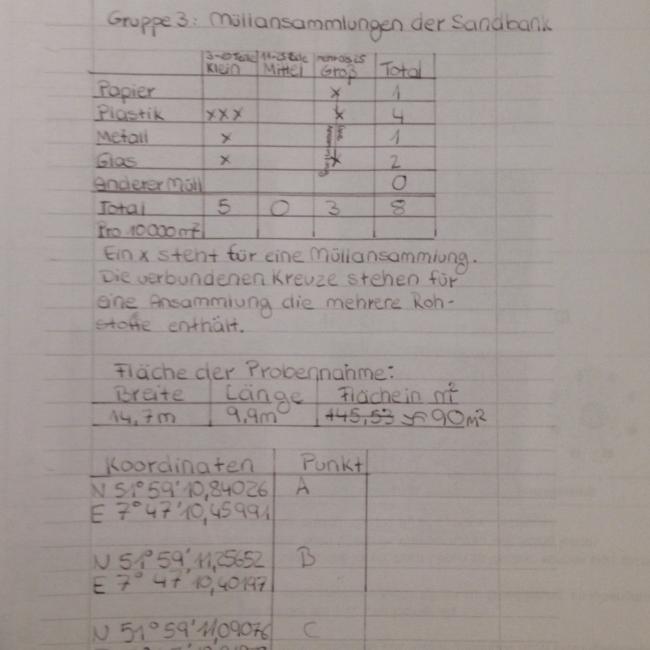 Gruppe 3: Müllansammlungen der Sandbank
Klein Mittel Groß Total
Papier x 1
Plastik xxx x 4
Metall x 1
Glas x x 2
Anderer Müll 0
Total 5 0 3 8
Pro 10000m²
Ein x steht für eine Müllansammlung.
Die verbundenen Kreuze stehen für
eine Ansammlung die mehrere Roh-
stoffe enthält.
Fläche der Probennahme:
Breite Länge Fläche in m²
14,7m 9,9m 145,53 ≈ 90m²
Koordinaten Punkt
N 51° 59' 10,84026 A
E 7° 47' 10,45991
N 51° 59' 11,25652 B
E 7° 47' 10,40197
N 51° 59' 11,09076 C